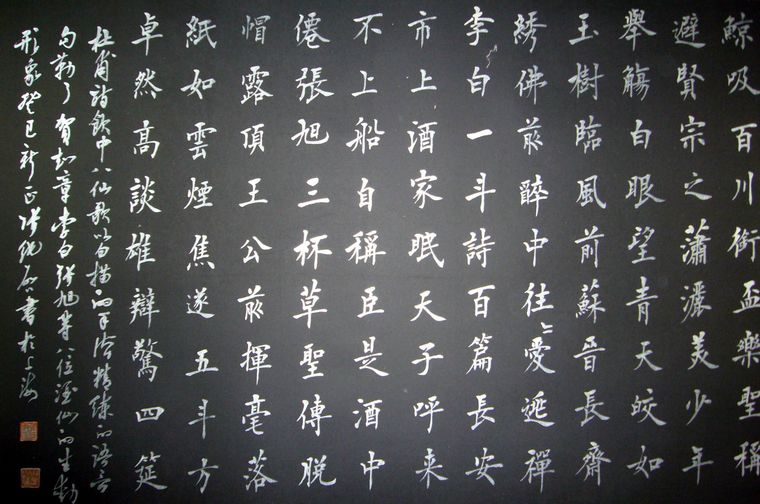 鯨吸百川銜盃樂聖稱
避賢宗之瀟灑美少年
舉觴白眼望青天皎如
玉樹臨風前蘇晉長齋
綉佛前醉中往〻愛逃禪
李白一斗詩百篇長安
市上酒家眠天子呼来
不上船自稱臣是酒中
僊張旭三杯草聖傳脱
帽露頂王公前揮毫落
紙如雲煙焦遂五斗方
卓然高談雄辯驚四筵
杜甫詩飲中八仙歌以白描的手法精練的語言
勾勒了賀知章李白張旭等八位酒仙的生動
形象癸巳新正張書於上海